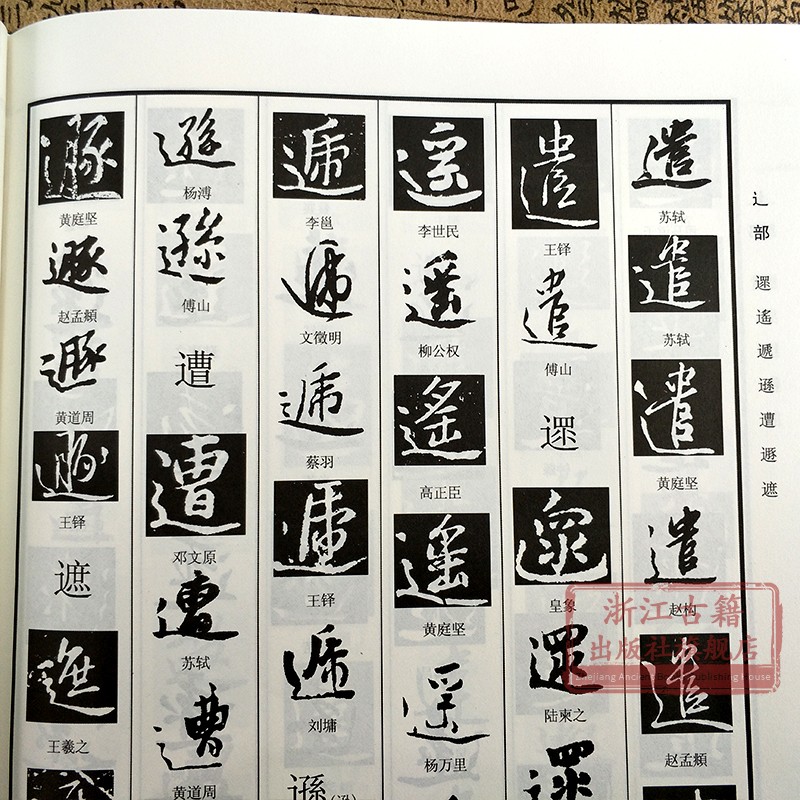 辶部
遝
遙
遞
遜
遭
遯
遮
遣
苏轼
遣
苏轼
遣
黄庭坚
遣
赵构
遣
赵孟頫
遣
王铎
遣
傅山
遝
遝
皇象
遝
陆柬之
遝
遙
李世民
遙
柳公权
遙
高正臣
遙
黄庭坚
遙
杨万里
遞
李邕
遞
文徵明
遞
蔡羽
遞
王铎
遞
刘墉
遜(逊)
遜
杨溥
遜
傅山
遭
遭
邓文原
遭
苏轼
遭
黄道周
遯
黄庭坚
遯
赵孟頫
遯
黄道周
遯
王铎
遮
遮
王羲之
浙江古籍
出版社旗舰店
Zhejiang Ancient Books Publishing House